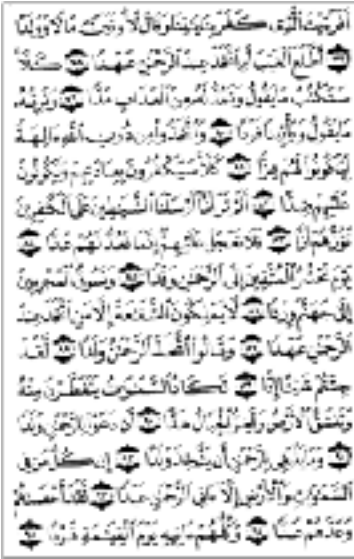 أفرءيت الذي كفر بـٔايتنا وقال لأوتين مالا وولدا
٧٧ أطلع الغيب أم اتخذ عند الرحمن عهدا ٧٨ كلا
سنكتب ما يقول ونمد له من العذاب مدا ٧٩ ونرثه
ما يقول ويأتينا فردا ٨٠ واتخذوا من دون الله ءالهة
ليكونوا لهم عزا ٨١ كلا سيكفرون بعبادتهم ويكونون
عليهم ضدا ٨٢ ألم تر أنا أرسلنا الشيطين على الكفرين
تؤزهم أزا ٨٣ فلا تعجل عليهم إنما نعد لهم عدا ٨٤
يوم نحشر المتقين إلى الرحمن وفدا ٨٥ ونسوق المجرمين
إلى جهنم وردا ٨٦ لا يملكون الشفعة إلا من اتخذ عند
الرحمن عهدا ٨٧ وقالوا اتخذ الرحمن ولدا ٨٨ لقد
جئتم شيـٔا إدا ٨٩ تكاد السموت يتفطرن منه
وتنشق الأرض وتخر الجبال هدا ٩٠ أن دعوا للرحمن ولدا
٩١ وما ينبغي للرحمن أن يتخذ ولدا ٩٢ إن كل من في
السموت والأرض إلا ءاتي الرحمن عبدا ٩٣ لقد أحصىهم
وعدهم عدا ٩٤ وكلهم ءاتيه يوم القيمة فردا ٩٥